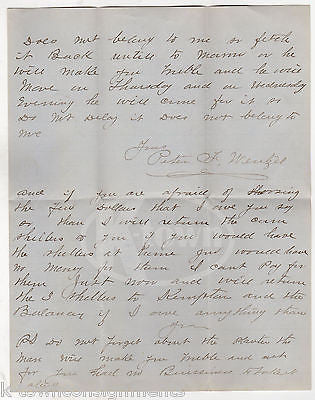 Does not belong to me or fetch
it Back untill to Morrow or he
will make you truble and he will
Move on Thursday and on Wednesday
Evening he will come for it so
Do Not Delay it Does not belong to
me
Yours
Peter F. Wenzel
and if you are afraid of
the Few Dollars that I owe you say
so than I will return the corn
shellers to you if you would have
the shellers at home you would have
no Money for them I cant Pay for
them Just now and will return
the 2 shellers to Kempton and the
Ballance if I owe anything than
PS Do not Forget about the Planter the
Man will make you truble and not
for you had no Buissiness to take it
along
k-townconsignments